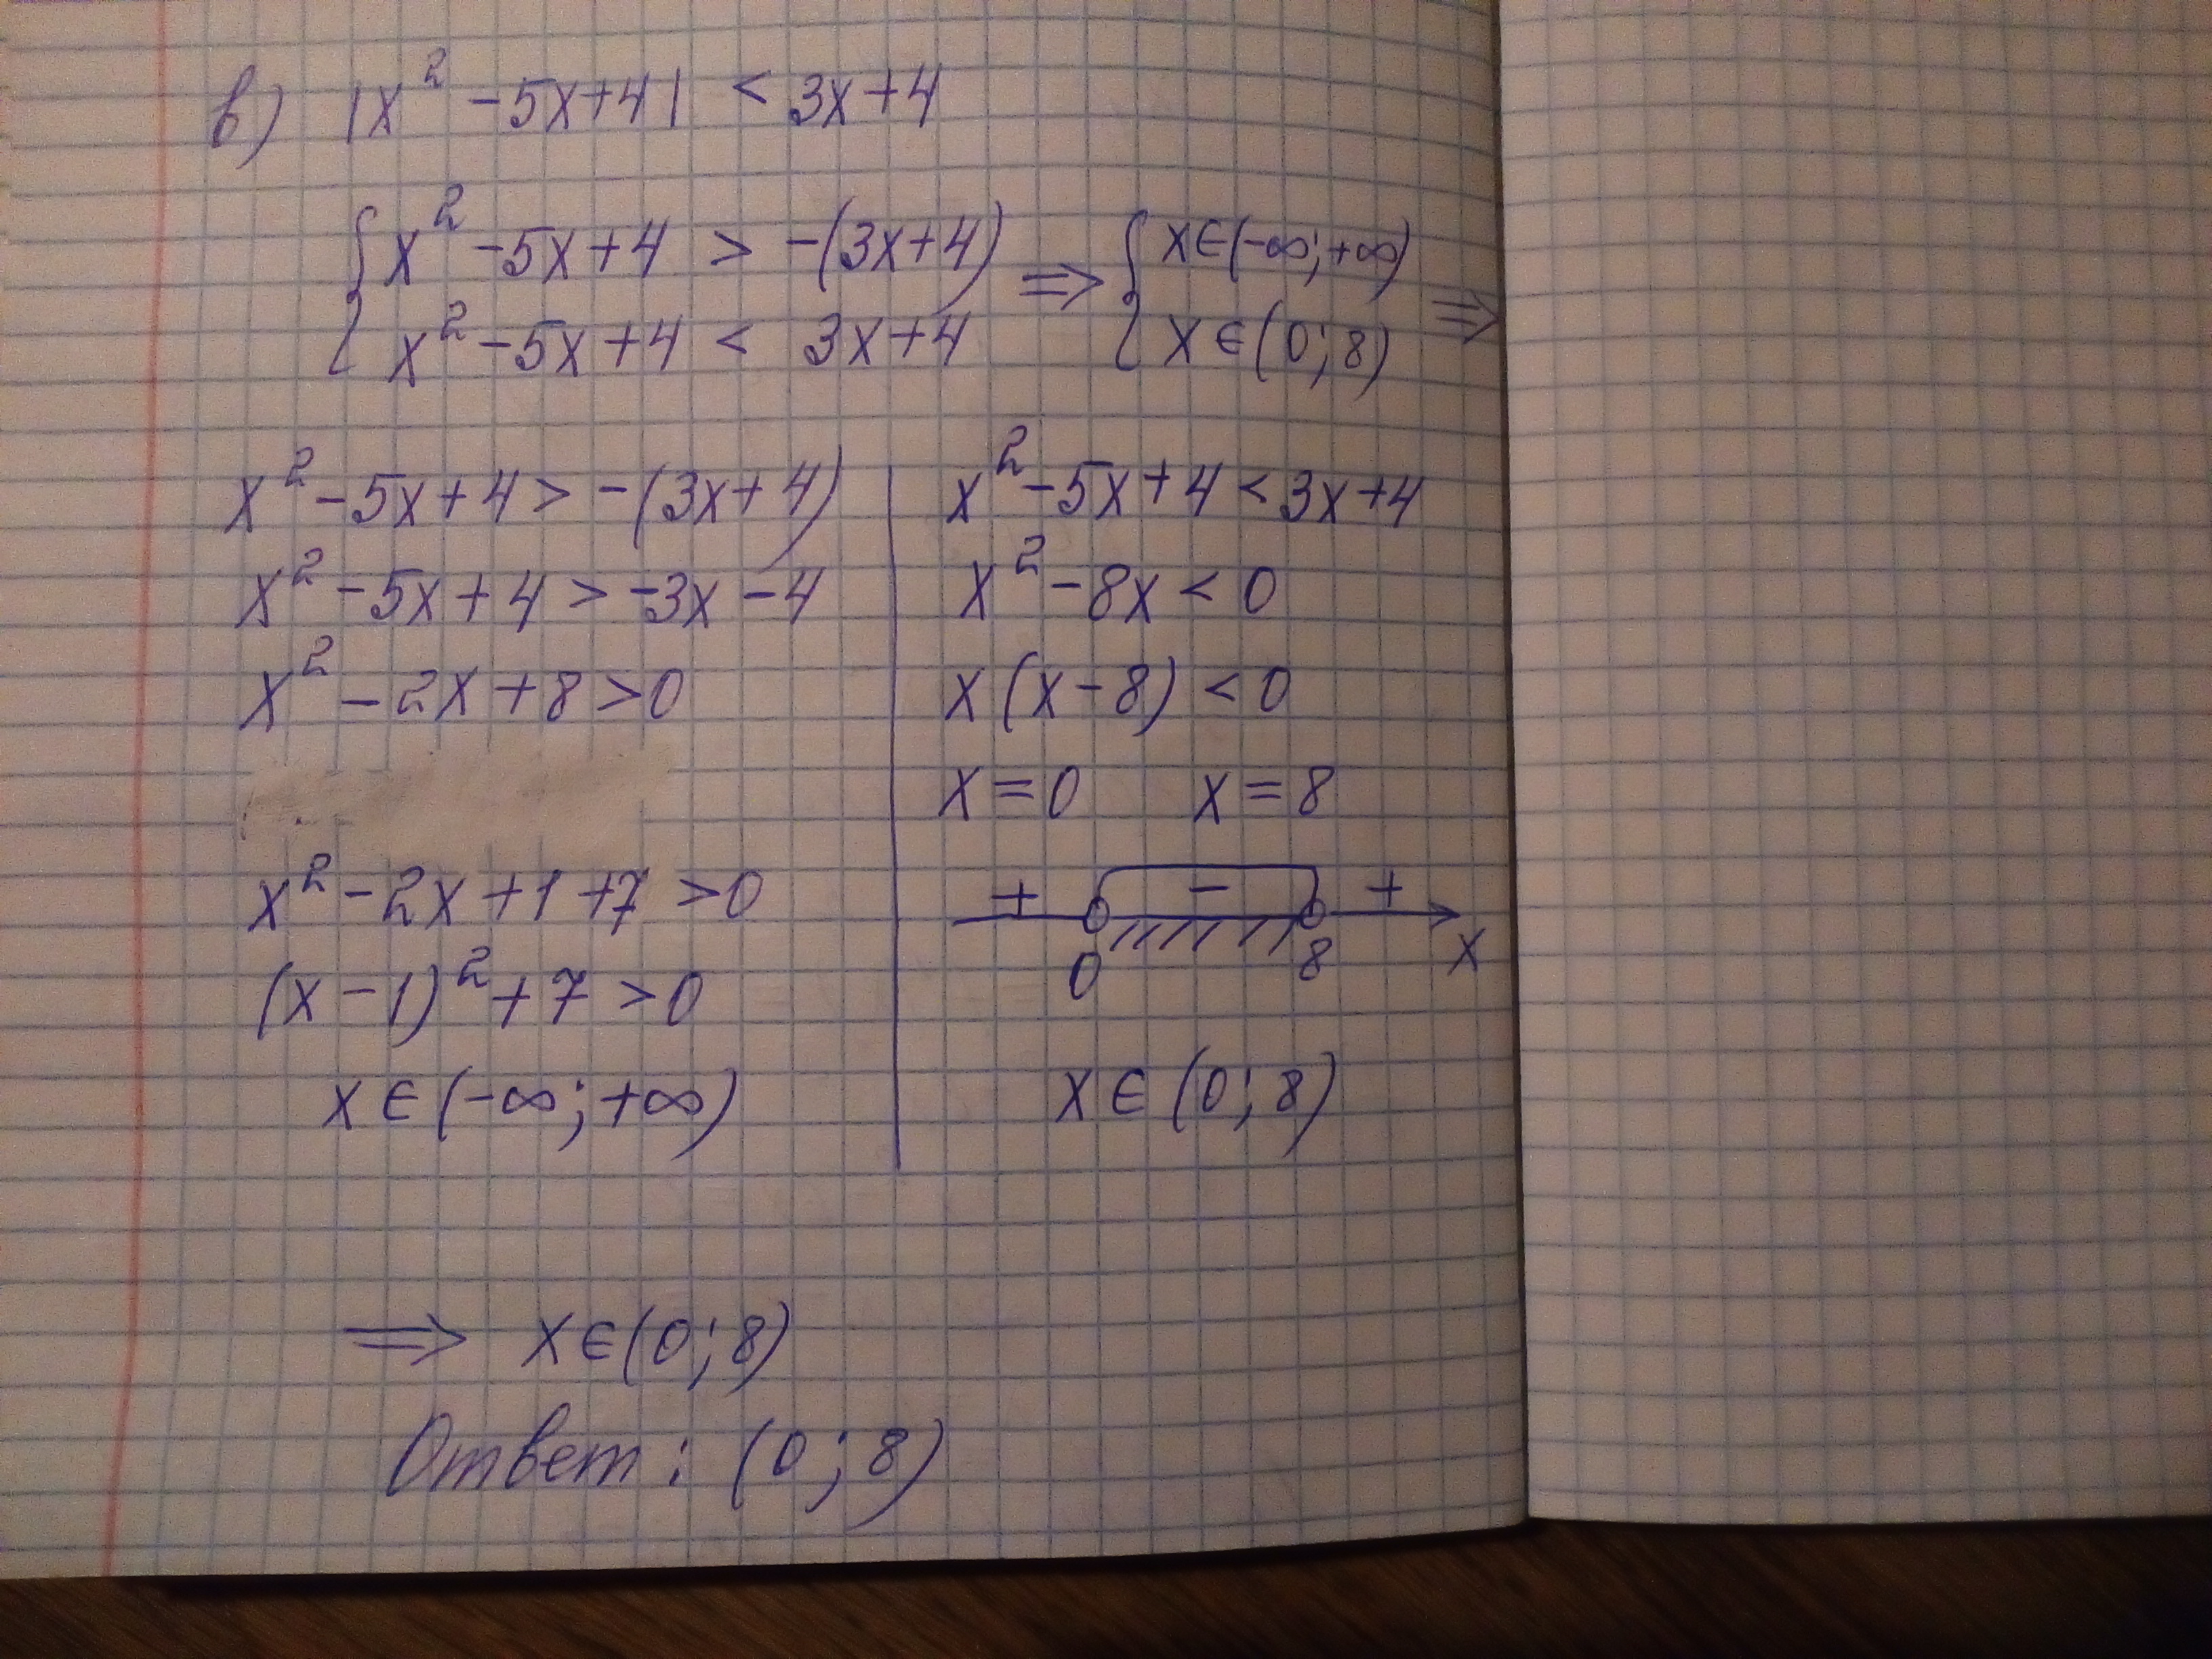 в) |x² -5x+4| < 3x+4
{ x² -5x+4 > -(3x+4) ⇒ { x∈(-∞;+∞) ⇒
x² -5x+4 < 3x+4 x∈(0;8)
x² -5x+4 > -(3x+4)
x² -5x+4 > -3x-4
x² -2x+8 >0
x² -2x+1+7 >0
(x-1)² +7 >0
x∈(-∞;+∞)
x² -5x+4 < 3x+4
x² -8x < 0
x(x-8) <0
x=0 x=8
+ - +
0 8 x
x∈(0;8)
⇒ x∈(0;8)
Ответ: (0;8)